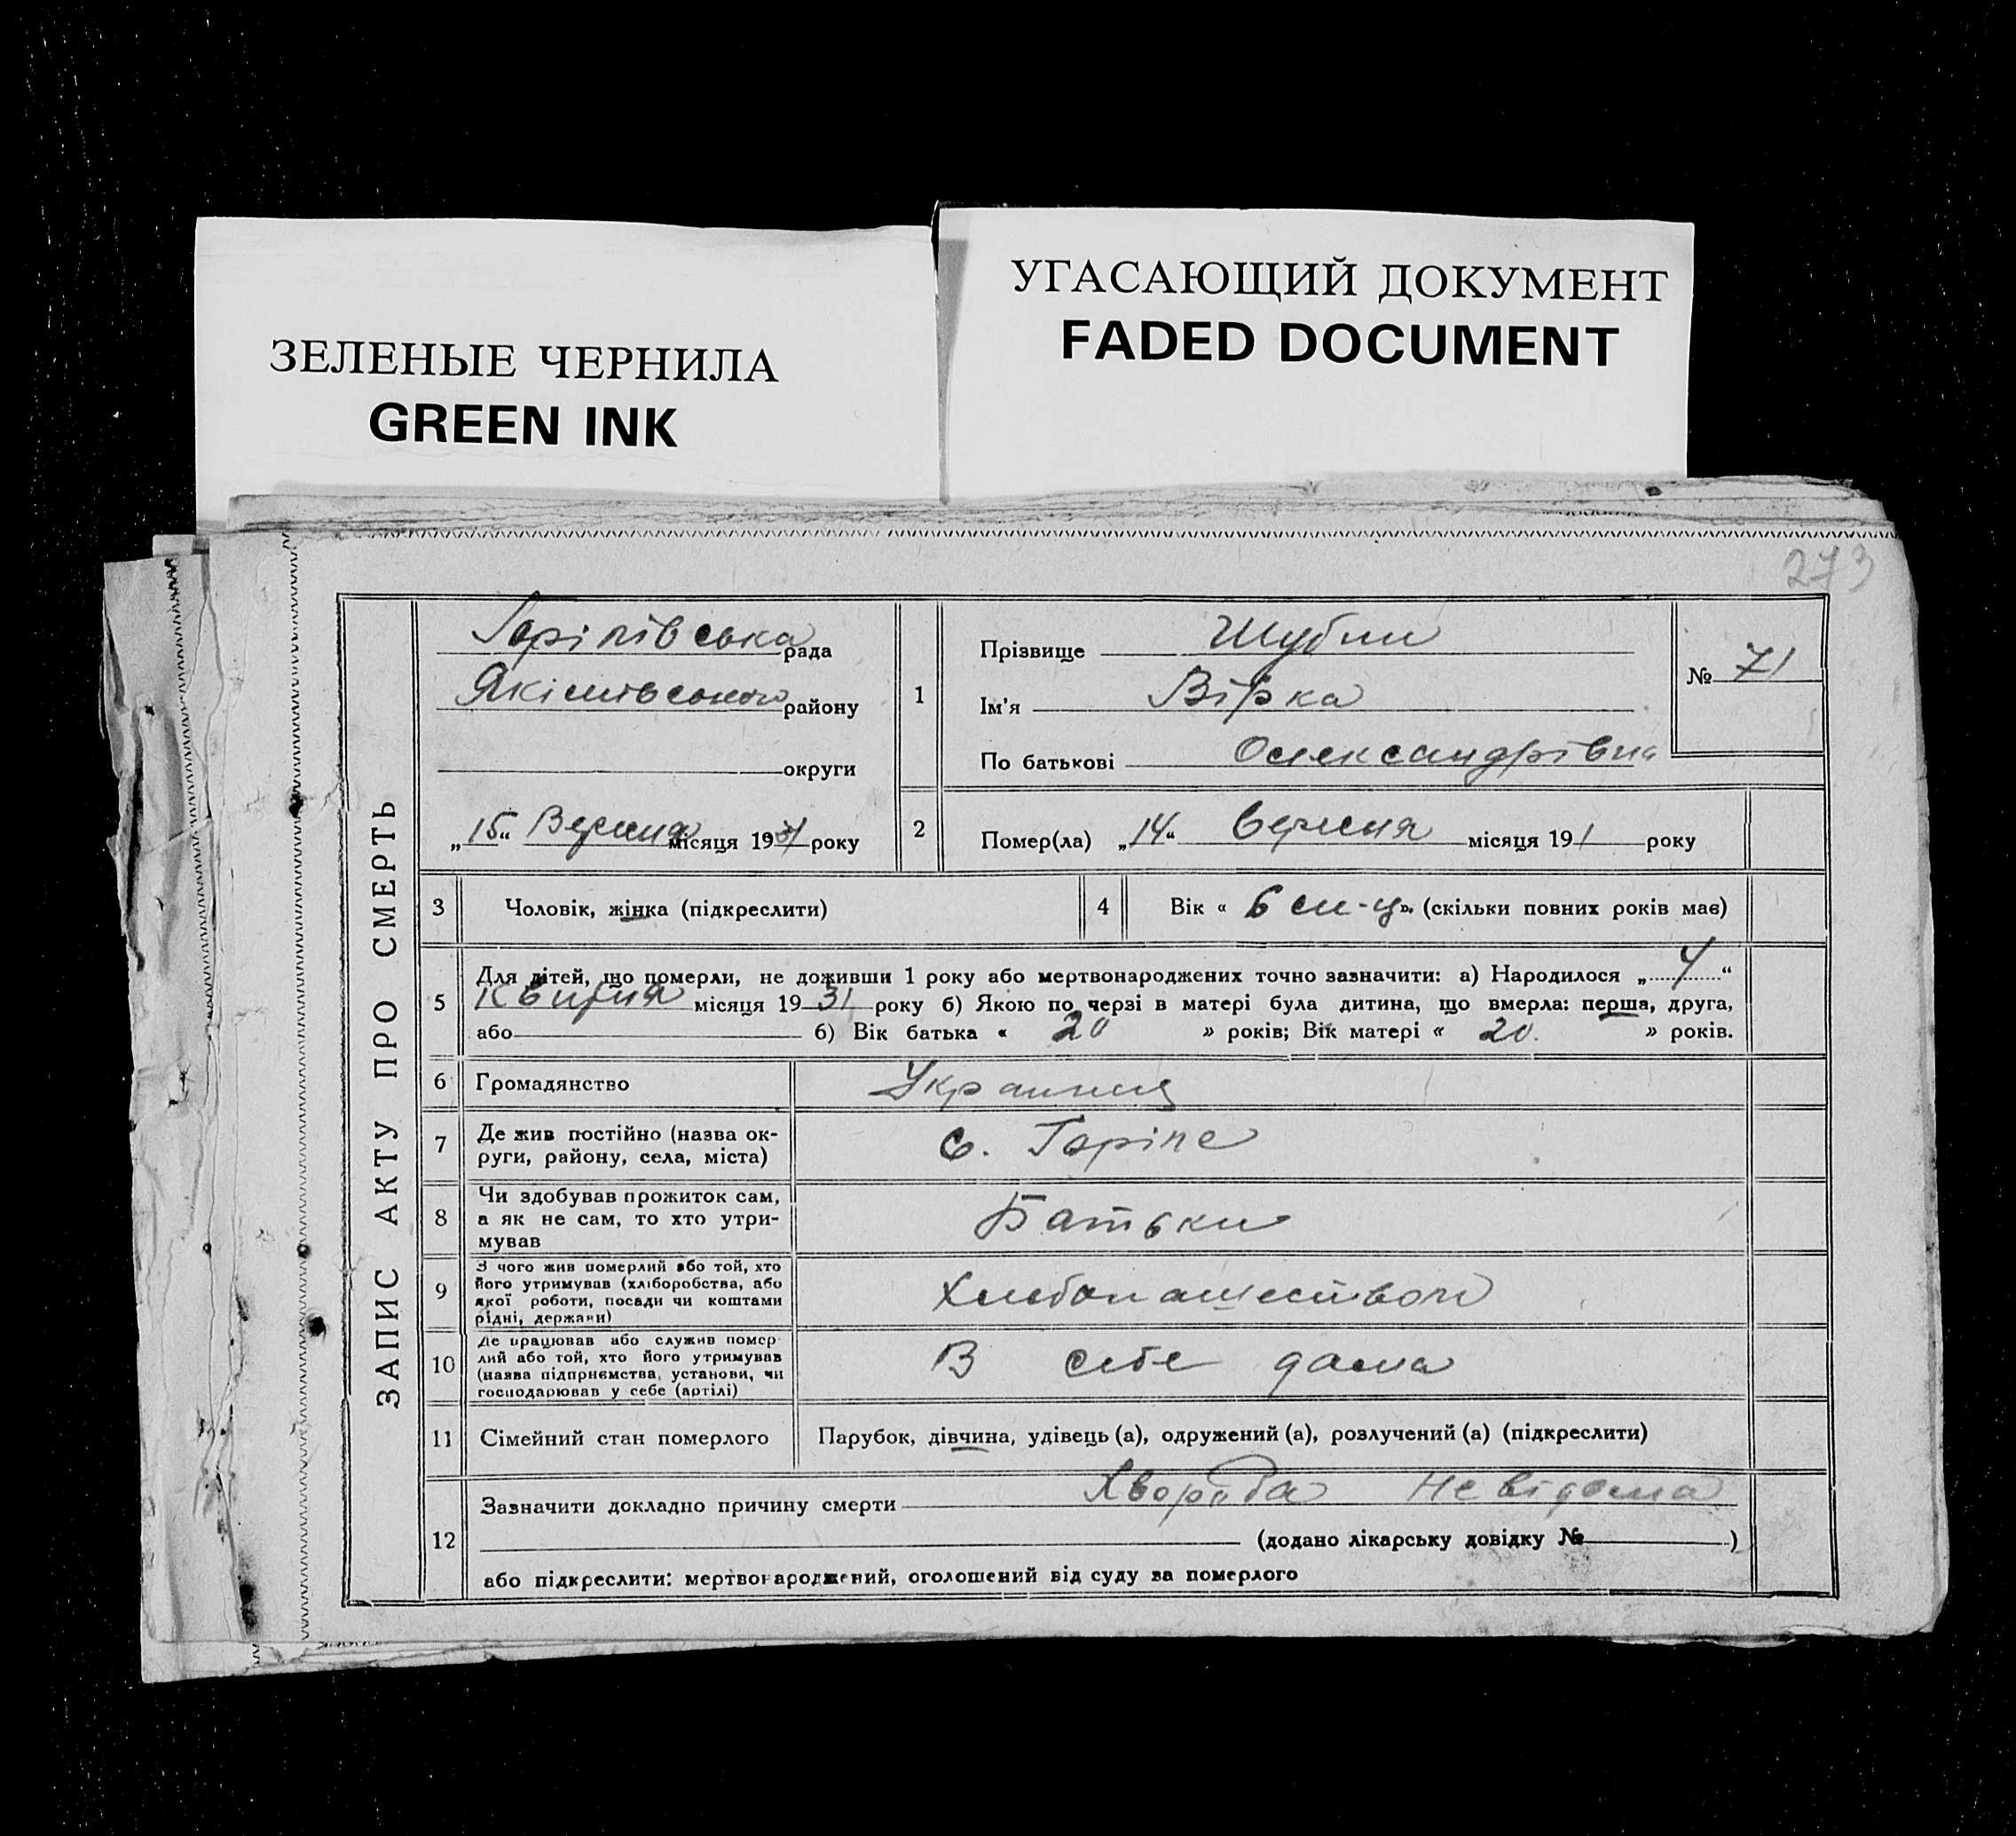 ЗЕЛЕНЫЕ ЧЕРНИЛА
GREEN INK
УГАСАЮЩИЙ ДОКУМЕНТ
FADED DOCUMENT
273
ЗАПИС АКТУ ПРО СМЕРТЬ
Горіпівська рада
Якімівського району
округи
„15“ Вересня місяця 1931 року
1
Прізвище Шубин
Ім'я Вірка
По батькові Олександрівна
№ 71
2
Помер(ла) „14“ Вересня місяця 191 року
3 Чоловік, жінка (підкреслити)
4 Вік « 6 м-ц». (скільки повних років має)
5 Для дітей, що померли, не доживши 1 року або мертвонароджених точно зазначити: а) Народилося „ 4 “
Квитня місяця 1931 року б) Якою по черзі в матері була дитина, що вмерла: перша, друга,
або б) Вік батька « 20 » років; Вік матері « 20. » років.
6 Громадянство
7 Де жив постійно (назва ок-
руги, району, села, міста)
с. Горіпе
8 Чи здобував прожиток сам,
а як не сам, то хто утри-
мував
Батьки
9 З чого жив померлий або той, хто
його утримував (хліборобства, або
якої роботи, посади чи коштами
рідні, держави)
Хлебопашеством
10 Де працював або служив помер-
лий або той, хто його утримував
(назва підприємства, установи, чи
господарював у себе (артілі)
В себе дома
11 Сімейний стан померлого
Парубок, дівчина, удівець (а), одружений (а), розлучений (а) (підкреслити)
12 Зазначити докладно причину смерти Хвороба Невідома
(додано лікарську довідку № )
або підкреслити: мертвонароджений, оголошений від суду за померлого